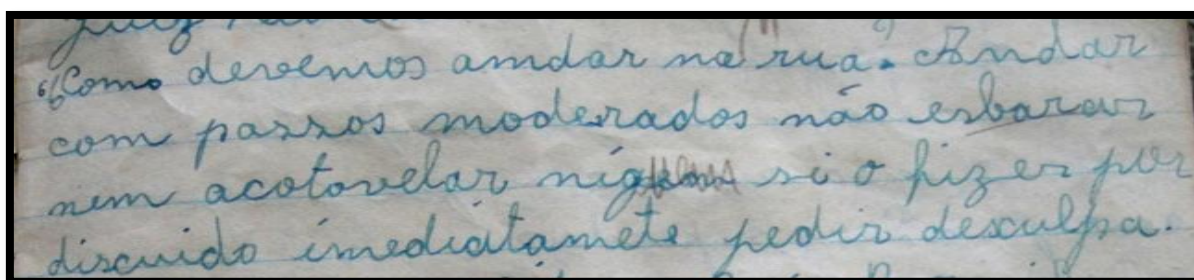 "Como devemos amdar na rua? Andar
com passos moderados não esbarar
nem acotovelar si o fizer por
discuido imediatamete pedir desculpa.